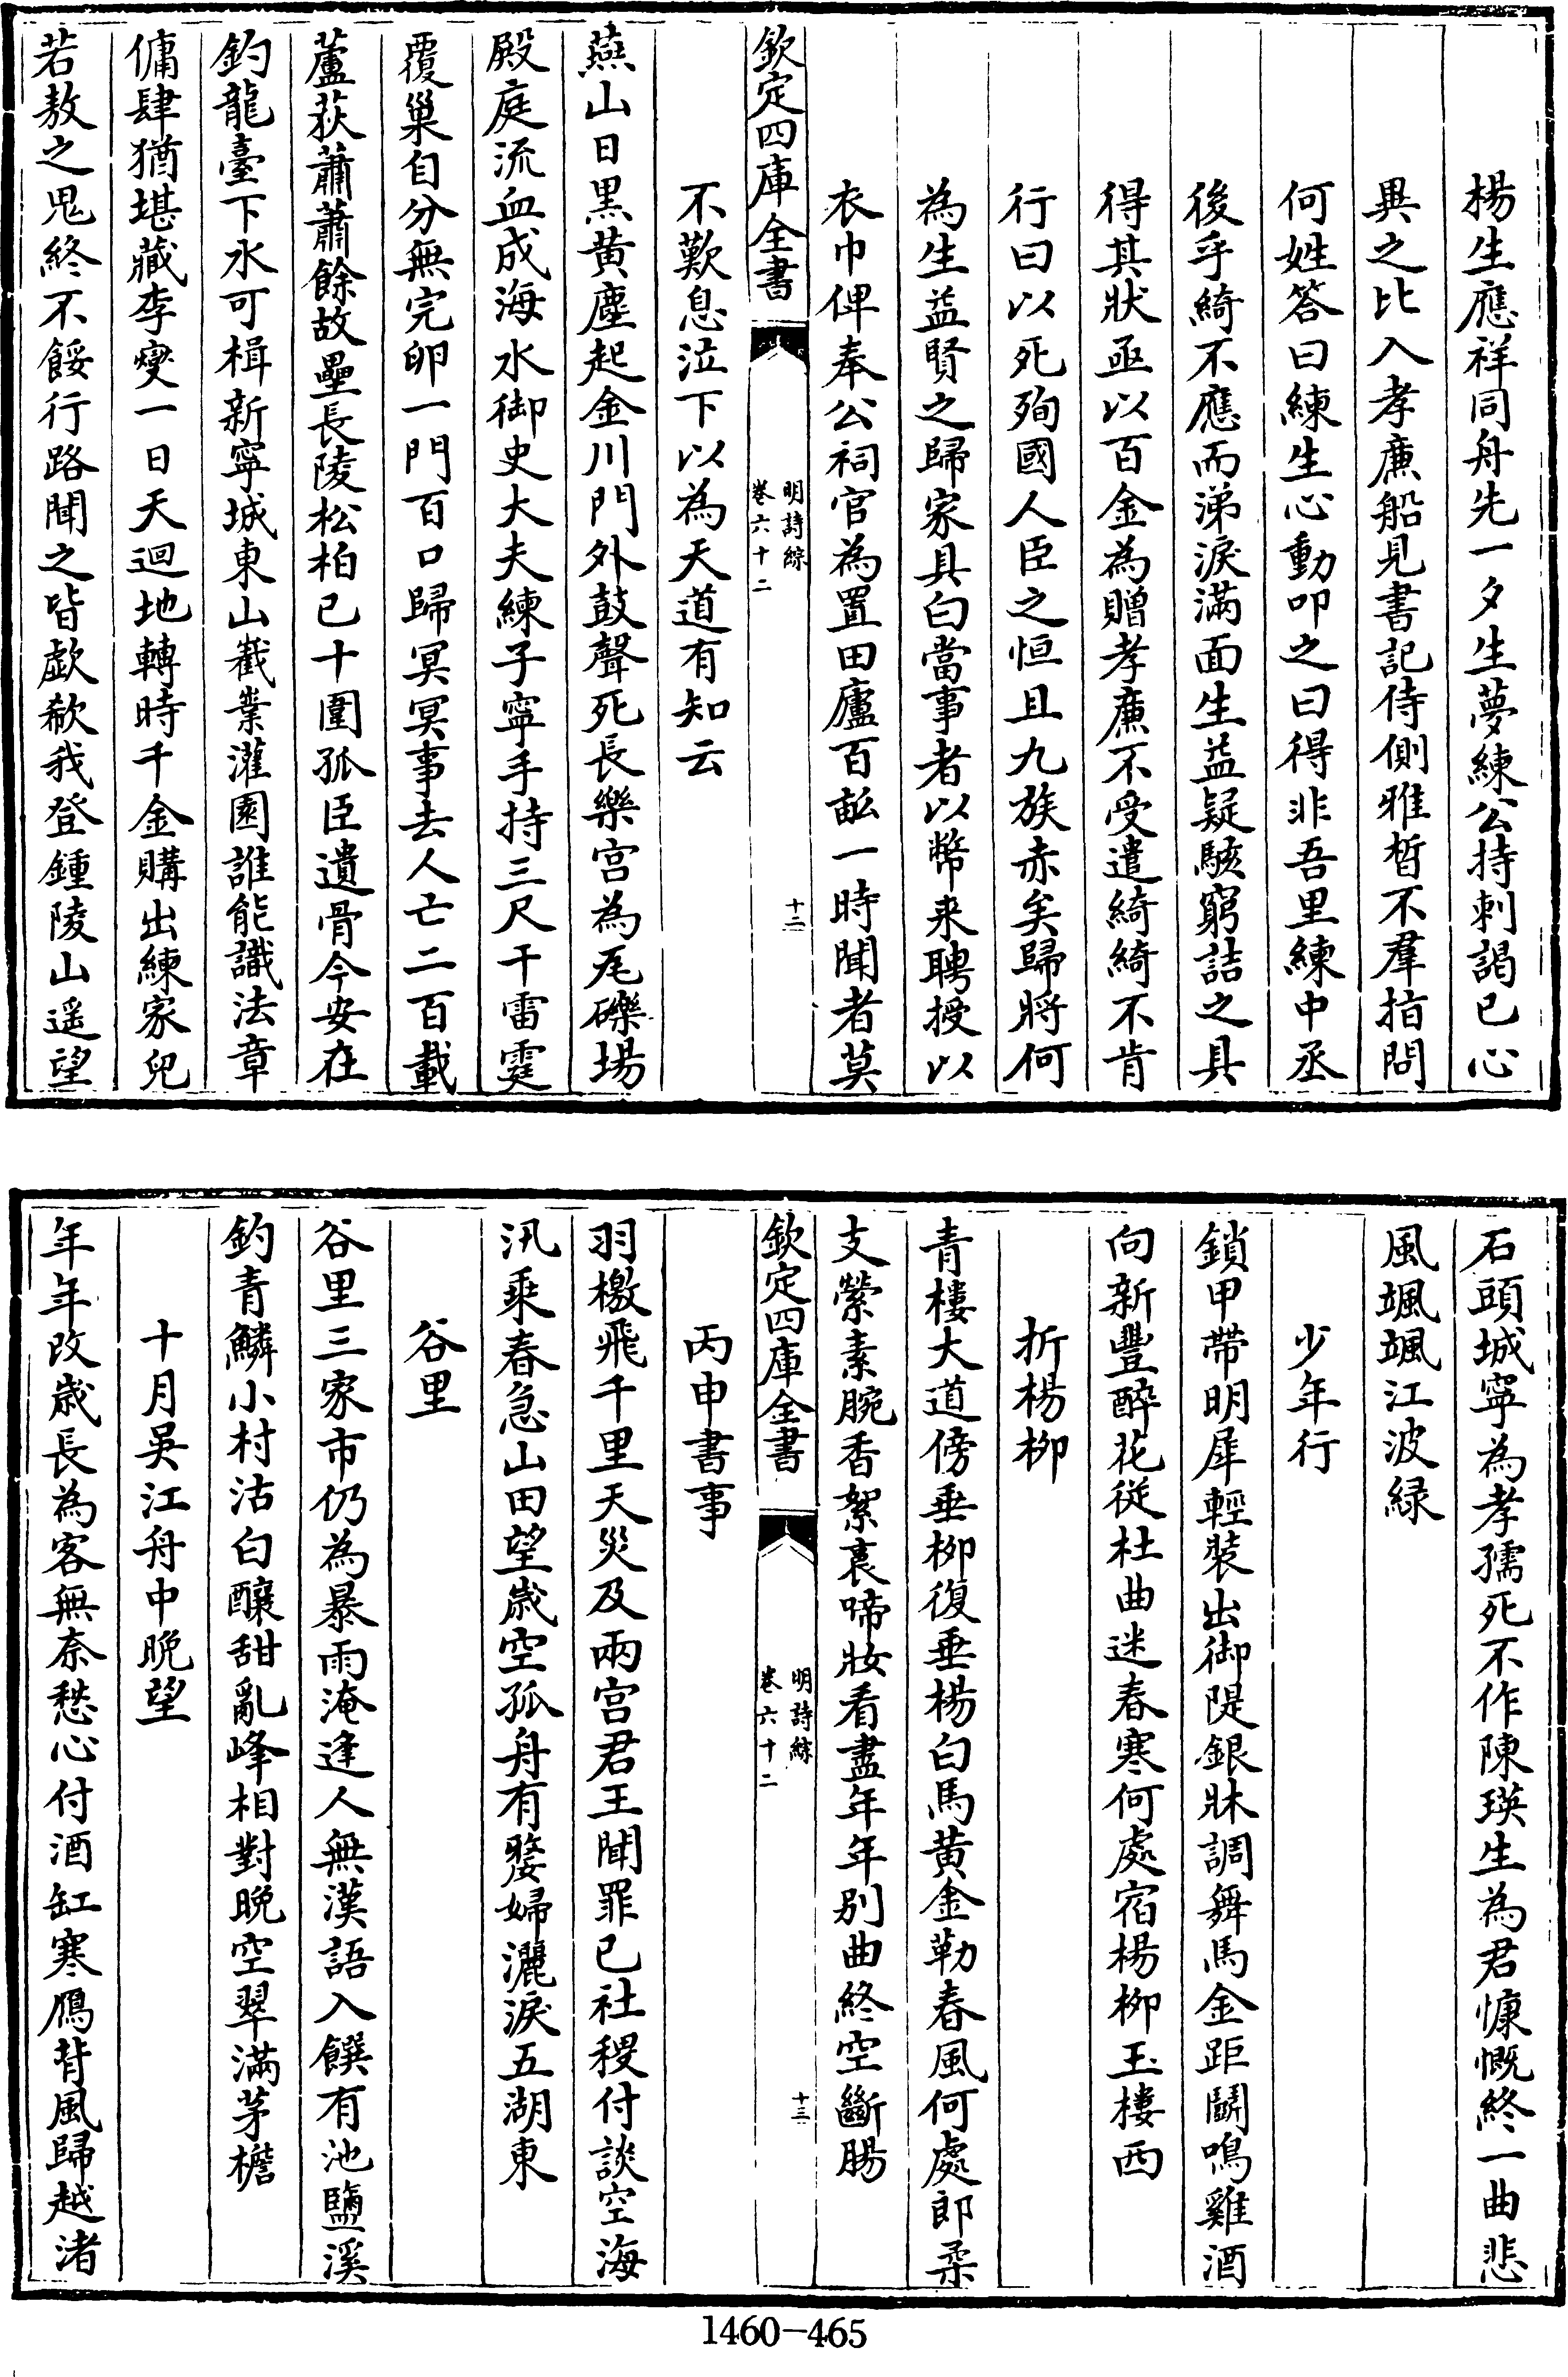 楊生應祥同舟先一夕生夢練公持刺謁已心
異之比入孝亷船見書記侍側雅晳不羣指問
何姓答曰練生心動叩之曰得非吾里練中丞
後乎綺不應而涕淚滿面生益疑駭窮詰之具
得其狀亟以百金為贈孝亷不受遣綺綺不肯
行曰以死殉國人臣之恒且九族赤矣歸將何
為生益賢之歸家具白當事者以幣来聘授以
衣巾俾奉公祠官為置田廬百畝一時聞者莫
欽定四庫全書
明詩綜
卷六十二
十二
不歎息泣下以為天道有知云
燕山日黒黄塵起金川門外鼓聲死長樂宫為瓦礫場
殿庭流血成海水御史大夫練子寧手持三尺干雷霆
覆巢自分無完卵一門百口歸冥冥事去人亡二百載
蘆荻蕭蕭餘故壘長陵松柏已十圍孤臣遺骨今安在
釣龍臺下水可楫新寧城東山嶻業灌園誰能識法章
傭肆猶堪藏李燮一日天迴地轉時千金購出練家兒
若敖之鬼終不餒行路聞之皆歔欷我登鍾陵山遥望
石頭城寧為孝孺死不作陳瑛生為君慷慨終一曲悲
風颯颯江波緑
少年行
鎖甲帶明犀輕裝出御隄銀牀調舞馬金距鬭鳴雞酒
向新豐醉花從杜曲迷春寒何處宿楊柳玉樓西
折楊柳
青樓大道傍垂柳復垂楊白馬黄金勒春風何處郎柔
支縈素腕香絮裛啼妝看盡年年别曲終空斷腸
欽定四庫全書
明詩綜
卷六十二
十三
丙申書事
羽檄飛千里天災及兩宫君王聞罪已社稷付談空海
汛乘春急山田望歳空孤舟有嫠婦灑淚五湖東
谷里
谷里三家市仍為暴雨淹逢人無漢語入饌有池鹽溪
釣青鱗小村沽白釀甜亂峰相對晚空翠滿茅檐
十月吳江舟中晩望
年年改歳長為客無奈愁心付酒缸寒鴈背風歸越渚
1460—465